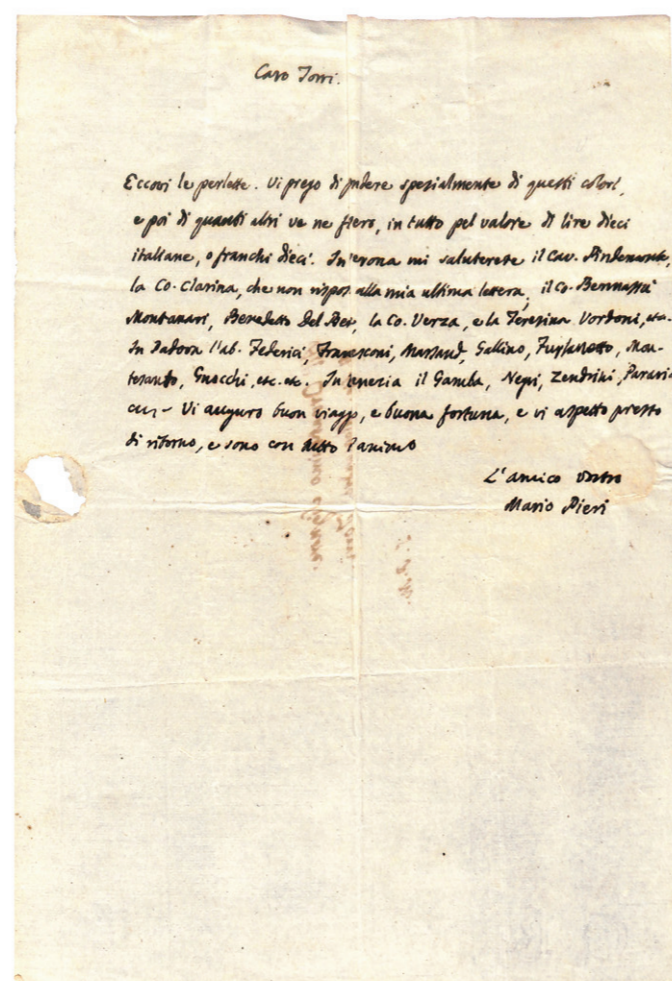 Caro Torri.
Eccovi le perlette. Vi prego di prendere spezialmente di questi colori,
e poi di quanti altri ve ne fiero, in tutto pel valore di lire dieci
italiane, o franchi dieci. In Verona mi saluterete il Cav. Pindemonte,
la Co. Clarina, che non rispose alla mia ultima lettera, il Co. Bennassù
Montanari, Benedetto Del Bene, la Co. Verza, e la Teresina Vordoni, etc.
In Padova l'ab. Federici, Franceschi, Marsand, Gallino, Furlanetto, Mon-
tesanto, Gnocchi, etc. etc. In Venezia il Gamba, Negri, Zendrini, Paravia
Vi auguro buon viaggo, e buona fortuna, e vi aspetto presto
di ritorno, e sono con tutto l'animo
L'amico vostro
Mario Pieri